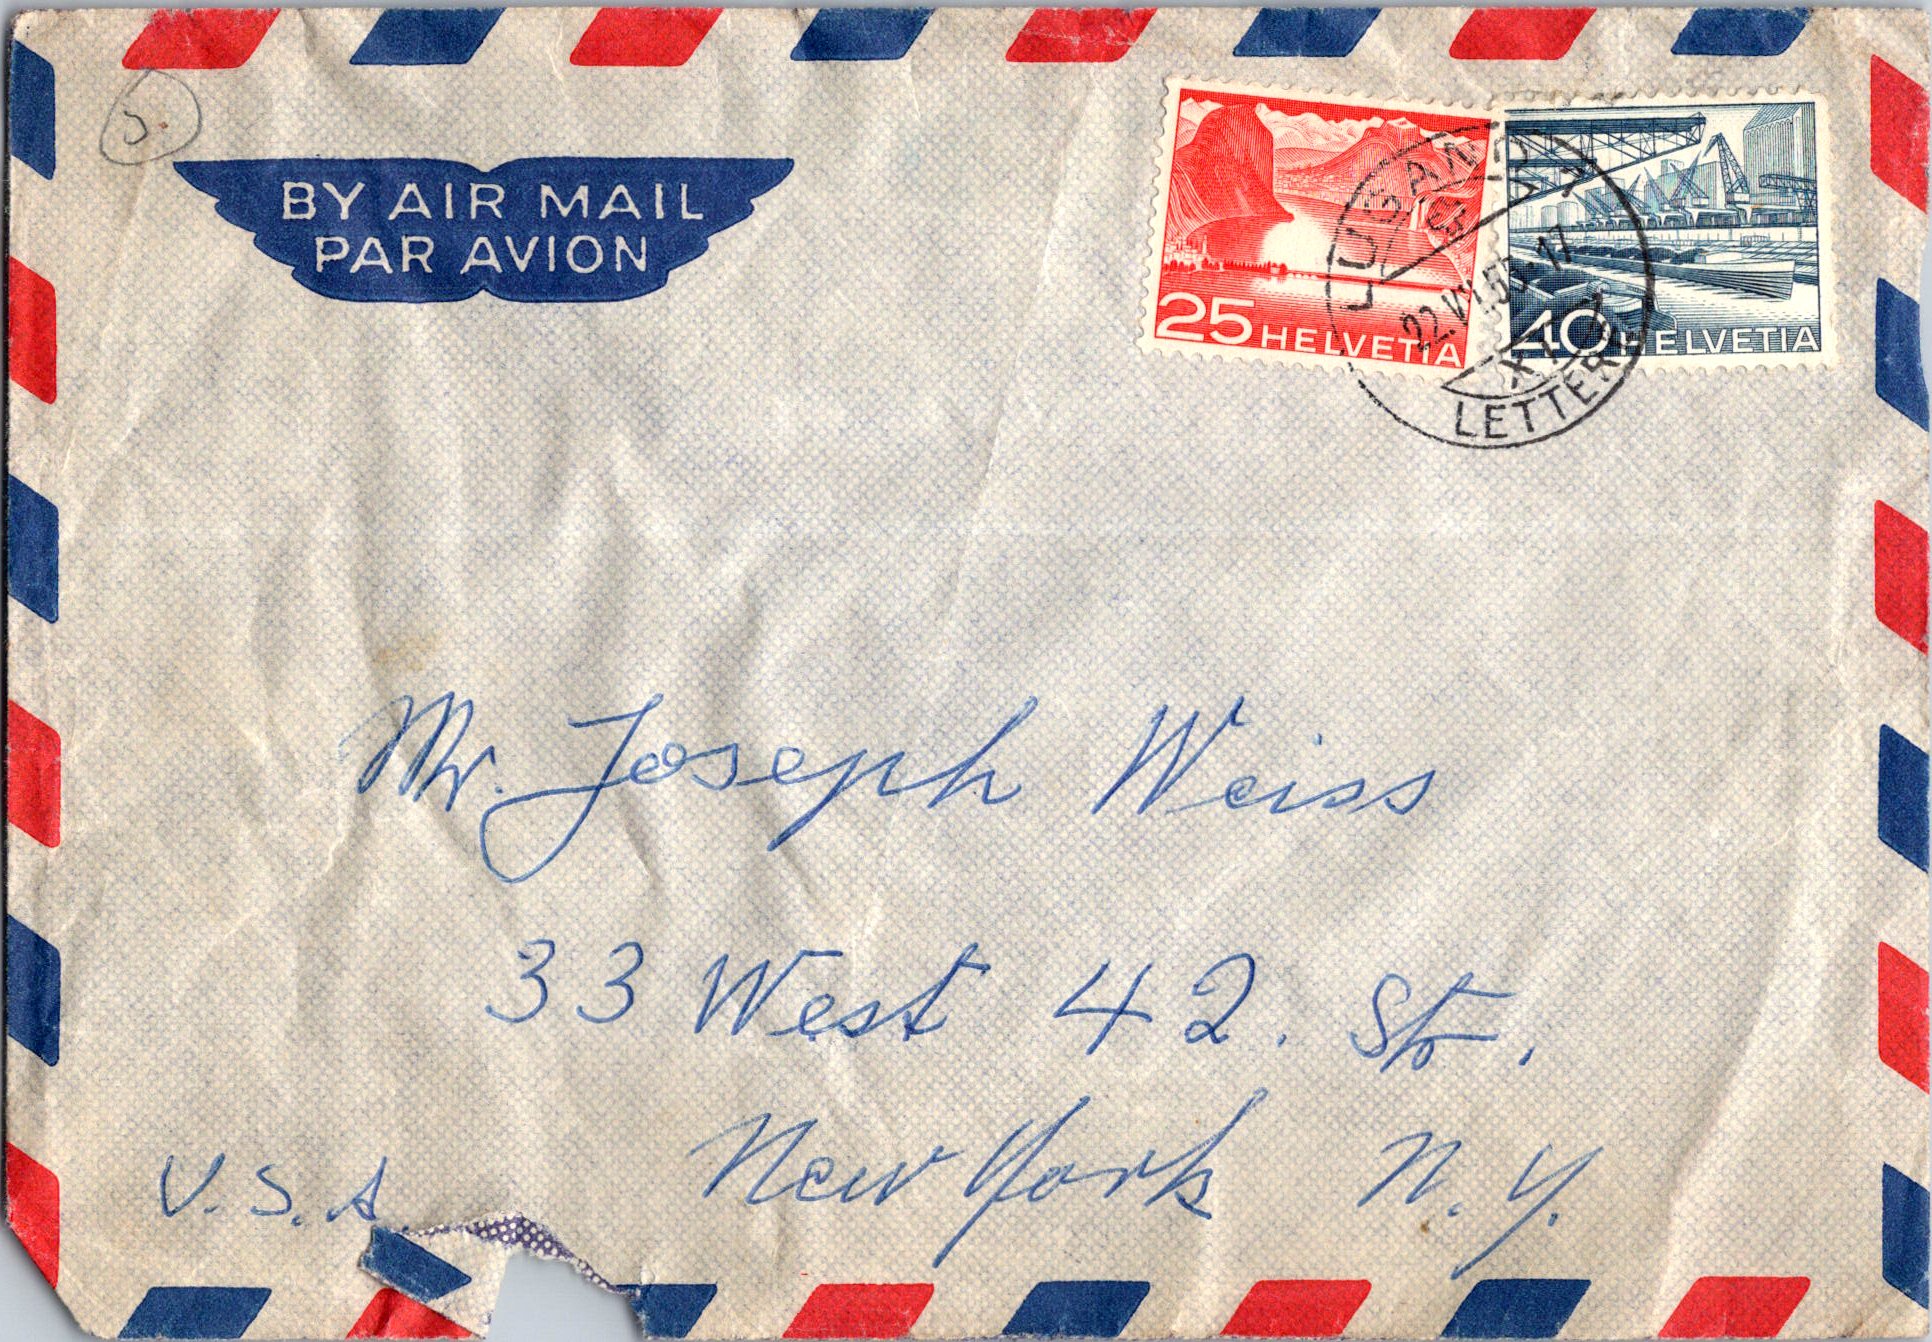 BY AIR MAIL
PAR AVION
25 HELVETIA
40 HELVETIA
LUGANO
22.VI.55-17
LETTERE
Mr. Joseph Weiss
33 West 42. Str.
New York N.Y.
U.S.A.